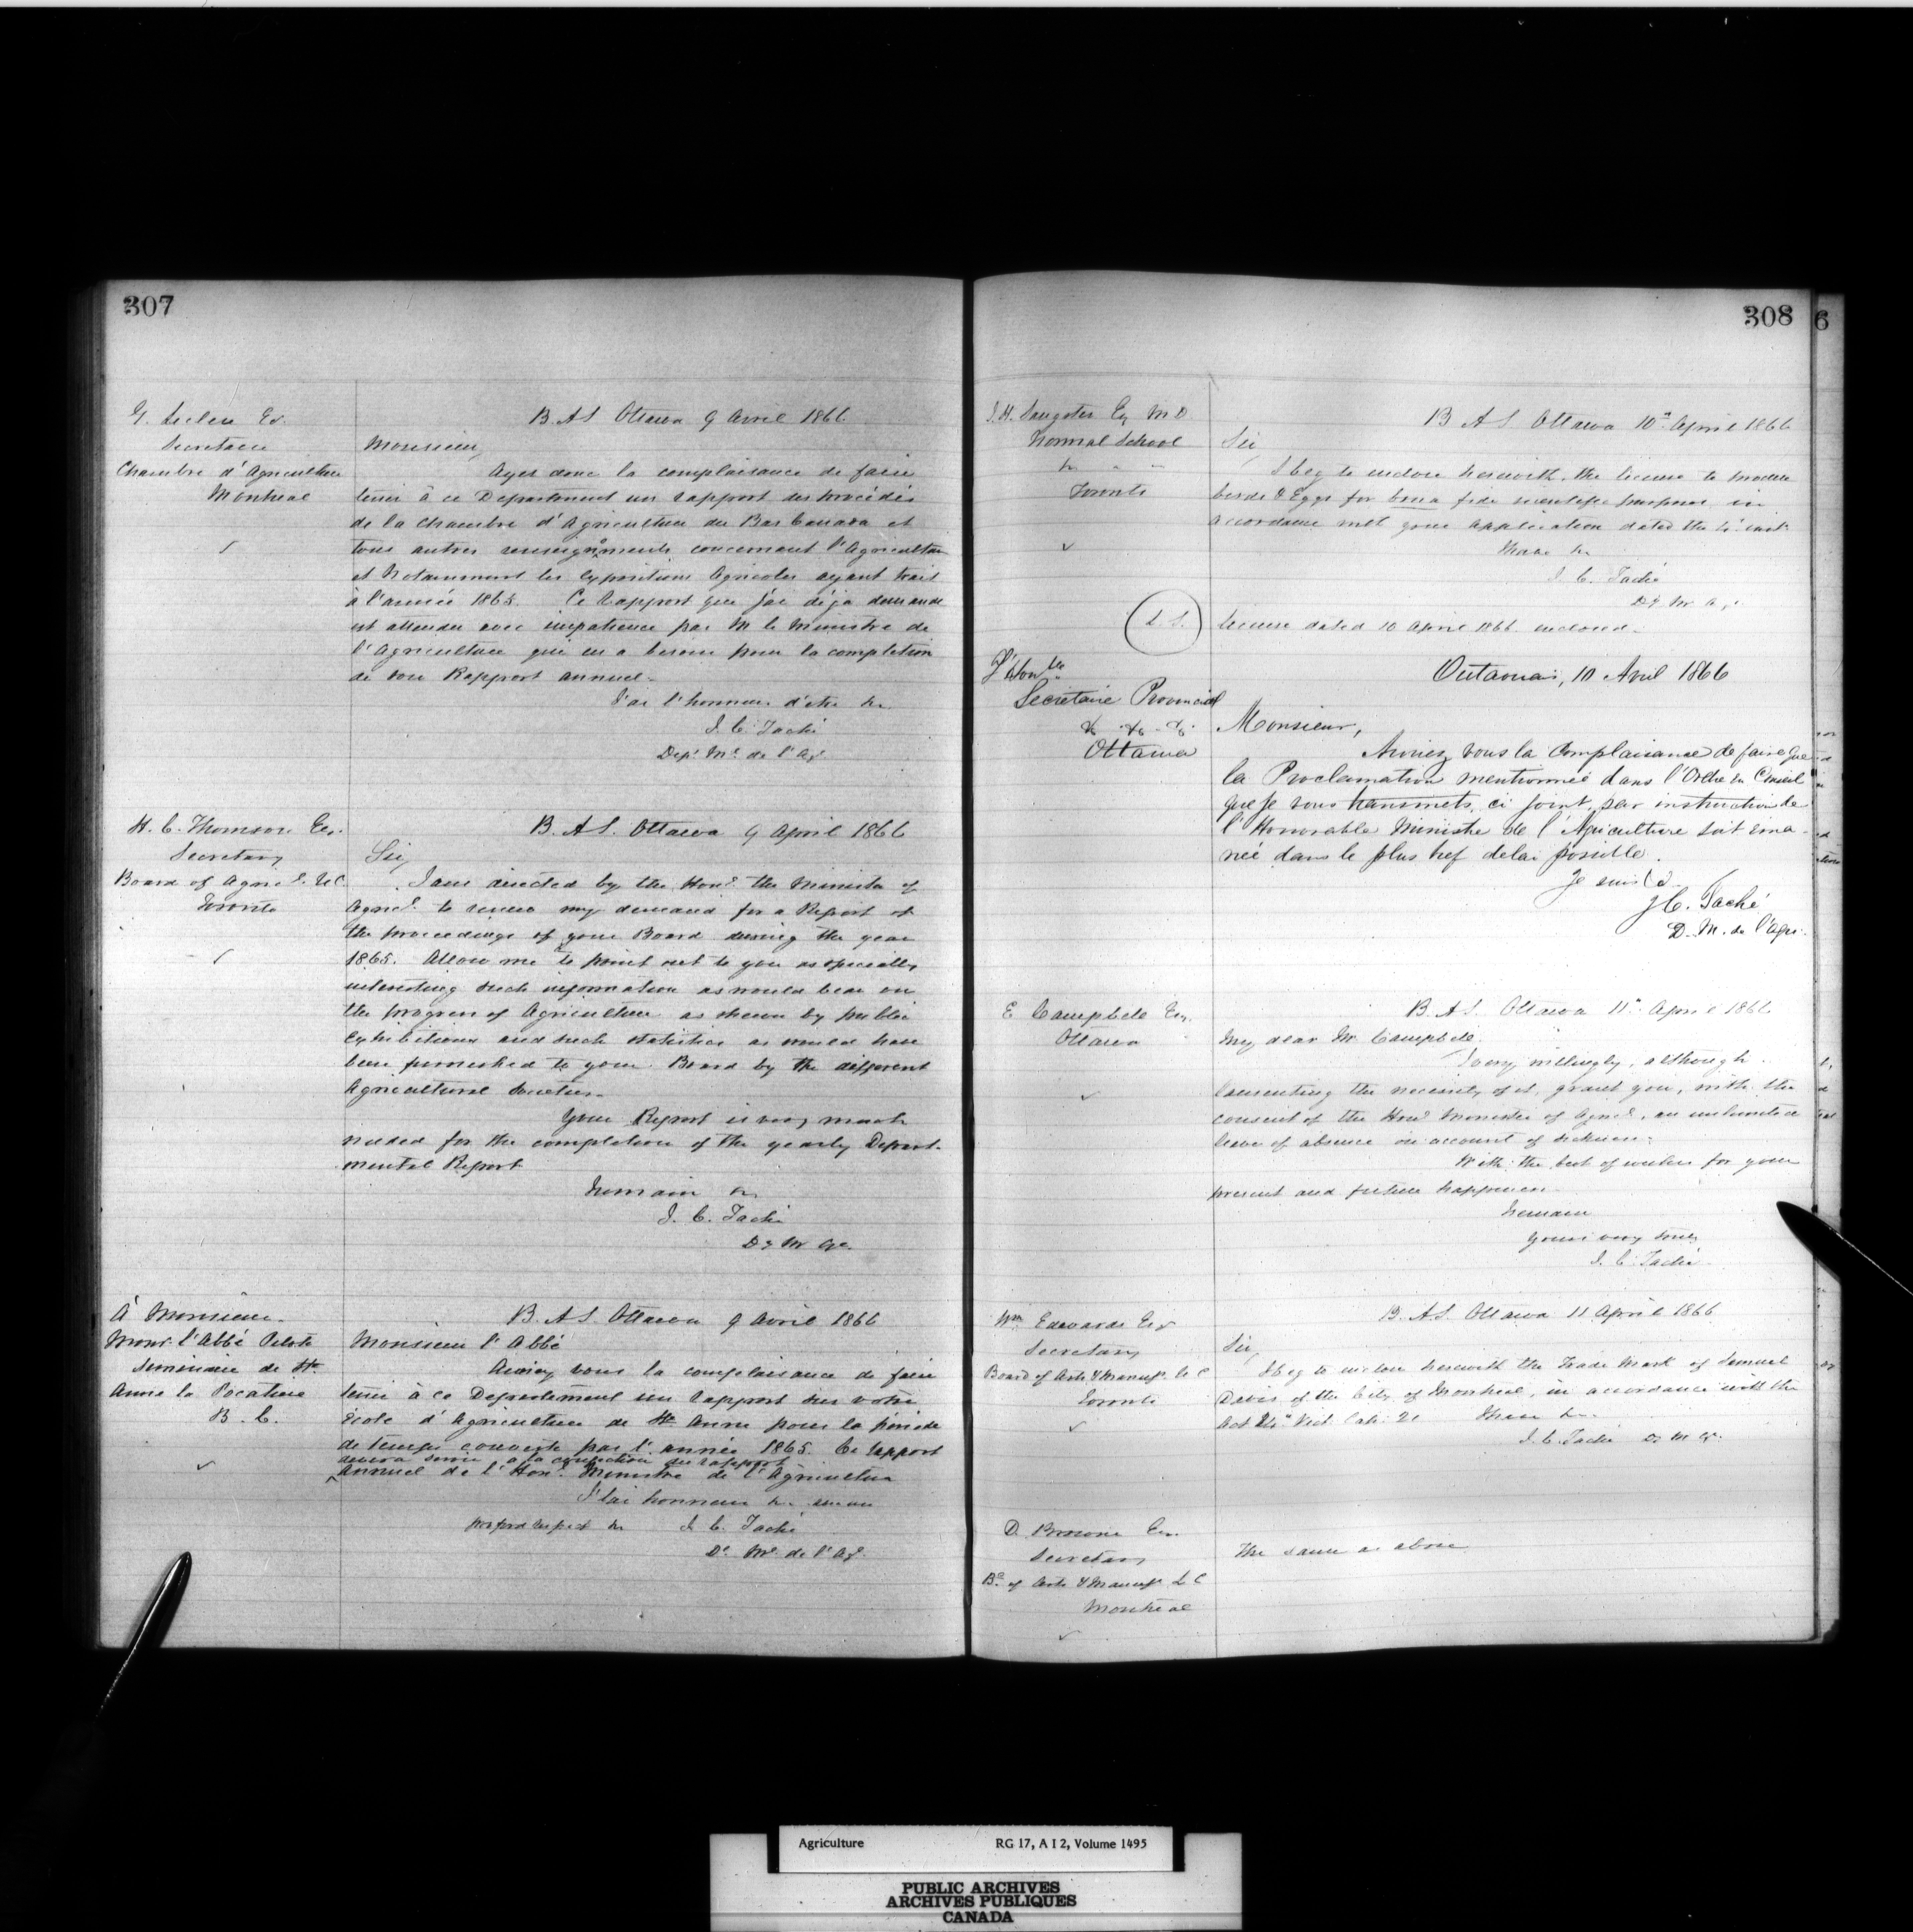 307
G. Leclere Er.
Secretaire
Chambre d'Agriculture
Montreal
B. A S Ottawa 9 Avril 1866
Monsieur,
Ayez donc la complaisance de faire
tenir à ce Departement un rapport des procédés
de la Chambre d'Agriculture du Bas Canada et
tous autres renseignements concernant l'Agriculture
et notamment les expositions Agricoles ayant trait
à l'année 1865. Ce rapport que j'ai déja demandé
est attendu avec impatience par M le Ministre de
l'Agriculture qui en a besoin pour la completion
de son Rapport annuel.
J'ai l'honneur d'etre &c
J. C. Taché
Dep. Me. de l'Ag.
H. C. Thomson Esr.
Secretary
Board of Agric. U C
Toronto
B. A S. Ottawa 9 April 1866
Sir,
I am directed by the Hon. the Minister of
Agric. to renew my demand for a Report of
the proceedings of your Board during the year
1865. Allow me to point out to you as specially
interesting such information as would bear on
the progress of Agriculture as shewn by public
Exhibitions and such statistics as would have
been furnished to your Board by the different
Agricultural Societies.
Your Report is very much
needed for the completion of the yearly Depart-
mental Report
I remain &c
J. C. Taché
Dy M Ag.
À Monsieur
Monsr. l'Abbé Pilote
Seminaire de Ste
Anne la Pocatiere
B. C.
B. A S Ottawa 9 Avril 1866
Monsieur l'Abbé
Auriez vous la complaisance de faire
tenir à ce Departement un rapport sur votre
École d'Agriculture de Ste Anne pour la période
de temps couverte par l'année 1865. Ce rapport
devra servir a la confection du rapport
annuel de l'Hon. Ministre de l'Agriculture
J'ai honneur &c
profond respect &c J. C. Taché
De. Me. de l'Ag.
308
J. H. Sangster Esq M D
Normal School
&c " "
Toronto
B A S Ottawa 10th April 1866
Sir,
I beg to enclose herewith the license to procure
birds & Eggs for bona fide scientific purposes in
accordance with your application dated the inst.
I have &c
J. C. Taché
Dy. M. A.
L. S.
License dated 10 April 1866 enclosed.
L'Honble
Secretaire Provincial
&c &c &c
Ottawa
Outaouais, 10 Avril 1866
Monsieur,
Auriez vous la Complaisance de faire que
la Proclamation mentionnée dans l'Ordre en Conseil
que je vous transmets, ci joint, par instruction de
l'Honorable Ministre de l'Agriculture soit éma-
née dans le plus bref delai possible.
Je suis &c
J C. Taché
D. M. de l'Agri.
E Campbele Esr.
Ottawa
B. A S. Ottawa 11th April 1866
My dear Mr Campbele.
I very willingly, although
lamenting the necessity of it, grant you, with the
consent of the Hon. Minister of Agric., an unlimited
leave of absence on account of sickness.
With the best of wishes for your
present and future happiness
I remain
Yours very truly
J. C. Taché
Wm Edwards Esr
Secretary
Board of Arts & Manuf. U C
Toronto
B. A S. Ottawa 11 April 1866
Sir,
I beg to enclose herewith the Trade Mark of Samuel
Davis of the City of Montreal, in accordance with the
Act 24th Vict. Cah. 21 I have &c
J. C. Taché Dy M Ag.
D. Browne Esr.
Secretary
Bd. of Arts & Manuf. L C
Montreal
The same as above
Agriculture RG 17, A I 2, Volume 1495
PUBLIC ARCHIVES
ARCHIVES PUBLIQUES
CANADA